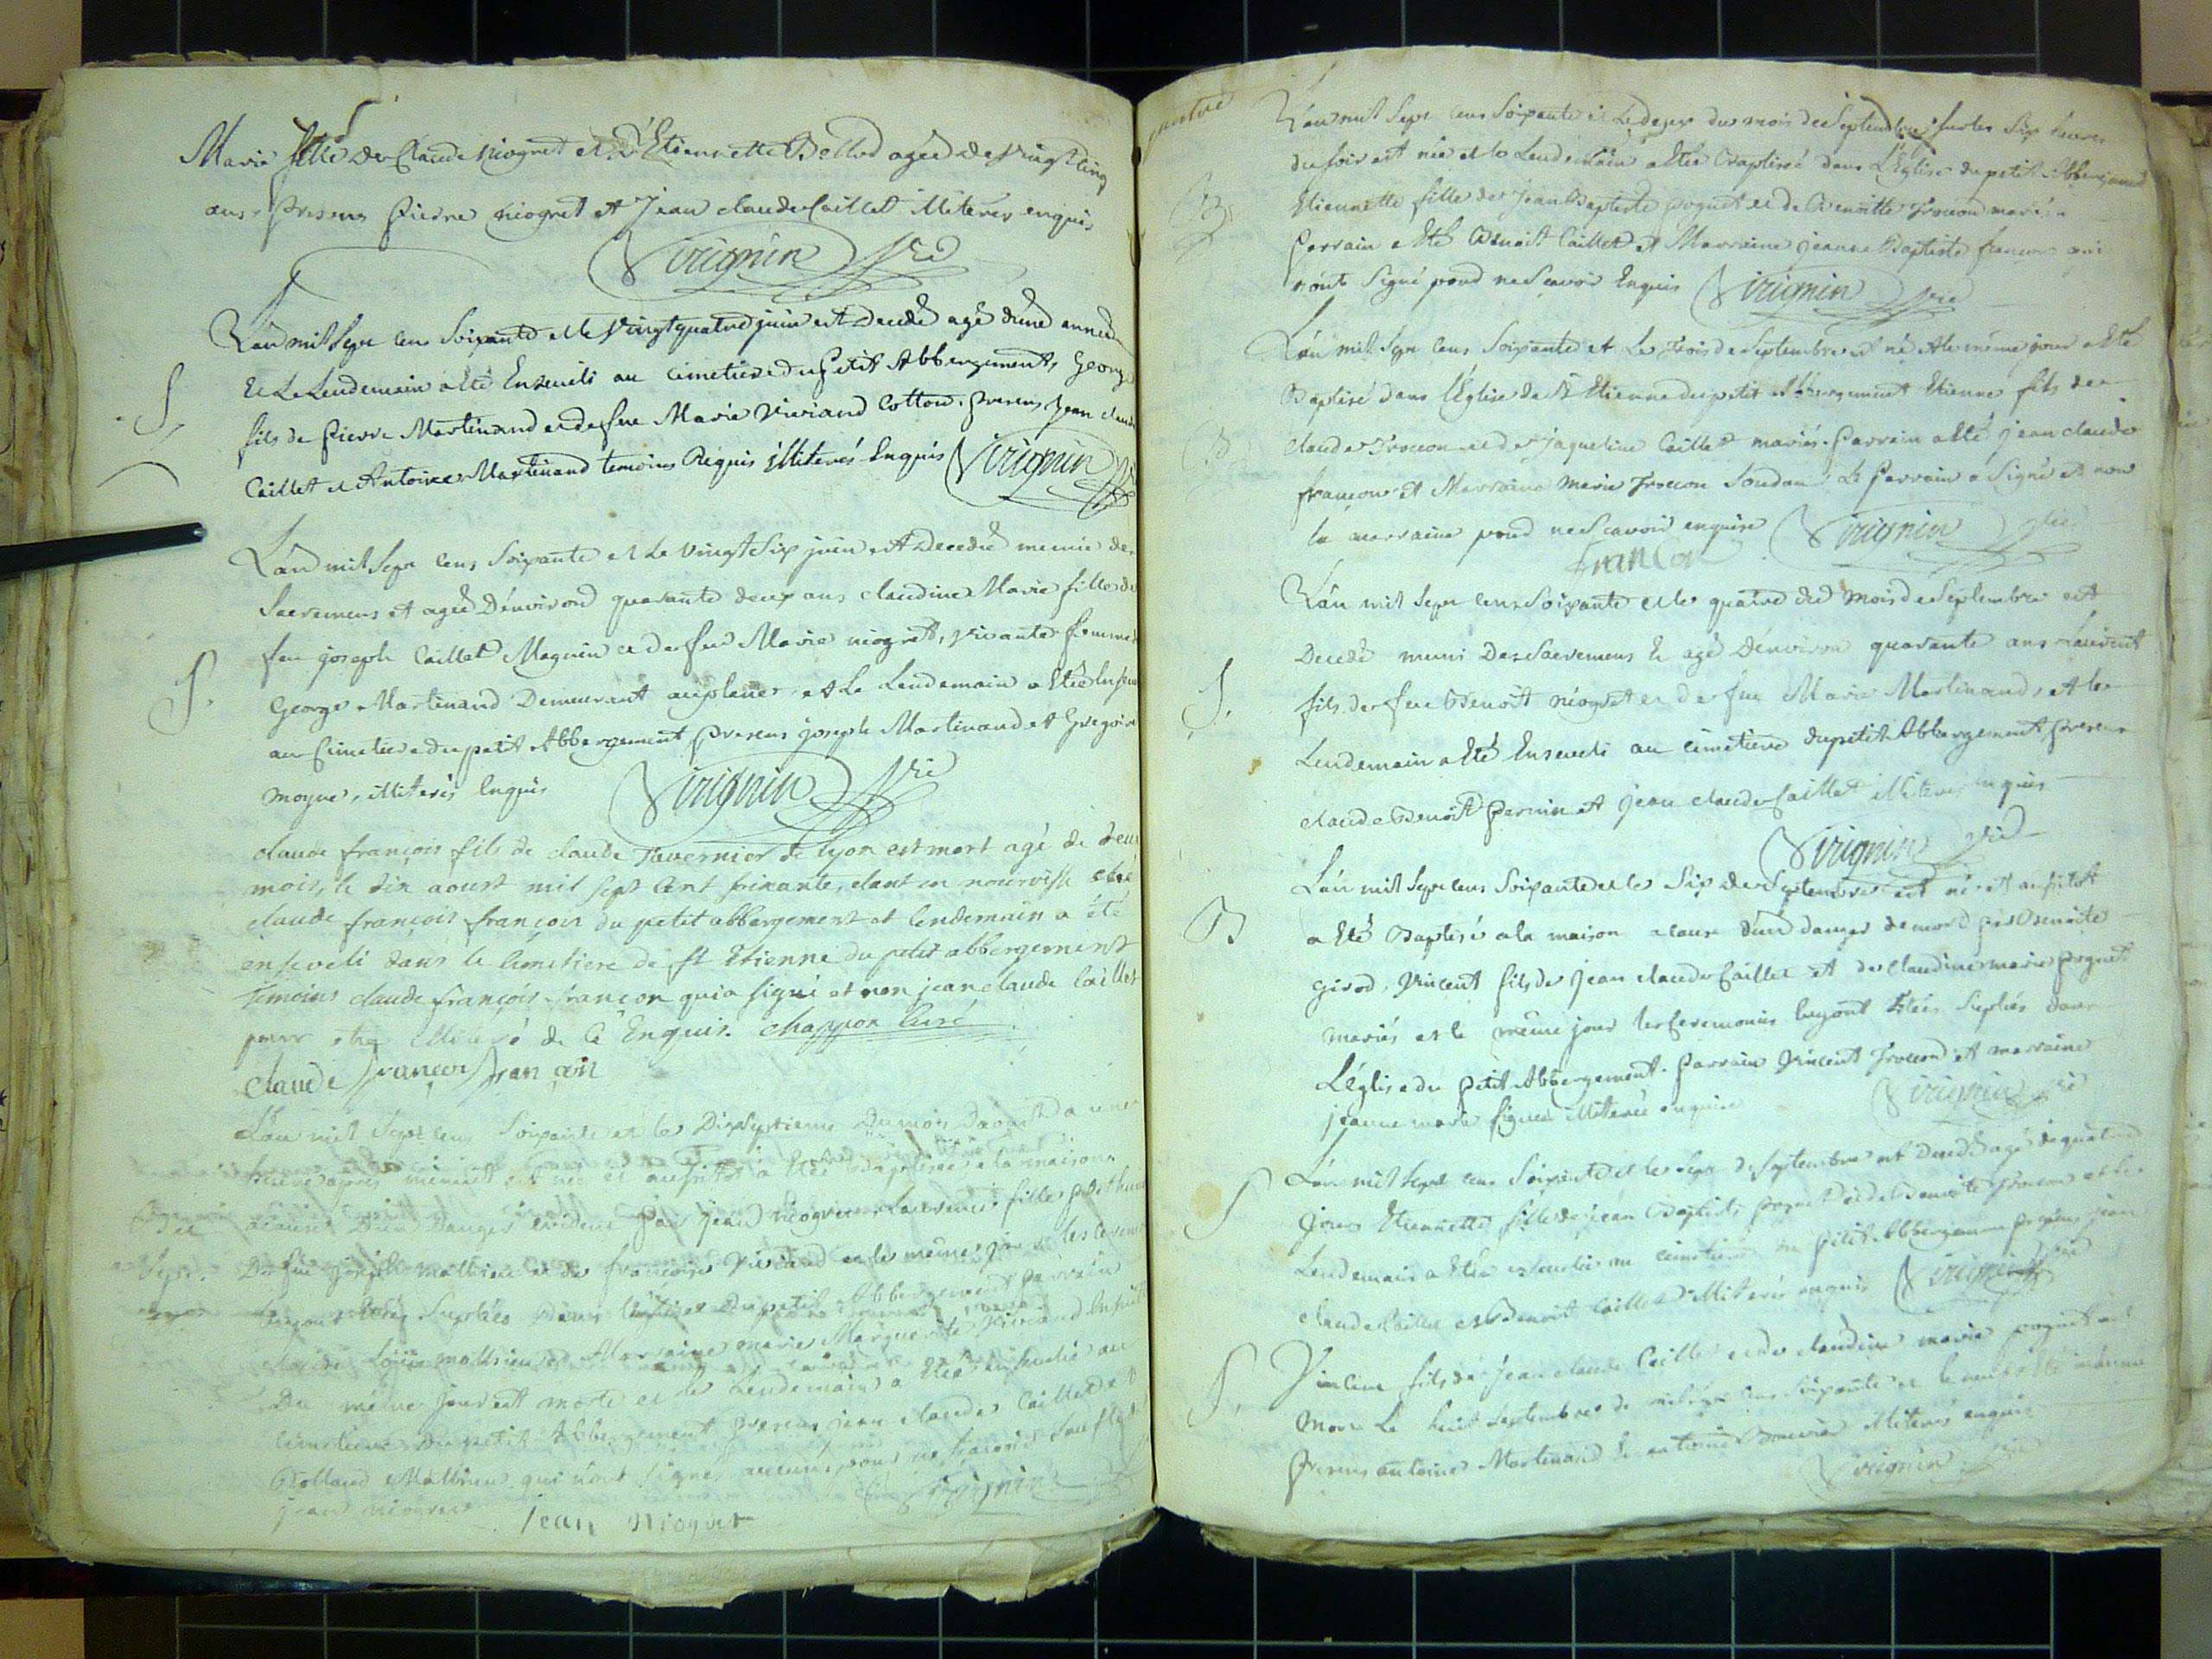 Marie fille de Claude niogret et d'Etiennette Bollod agée de vingt cinq
ans. presens Pierre niogret et Jean claude Caillet illiterés enquis
Virignin Vic
L'an mil sept cens soixante et le vingt quatre juin est decedé agé d'une année
et le lendemain a été enseveli au cimetiere du petit Abbergement, George
S.
fils de Pierre Martinand et de feue Marie Viviand Cotton. presens Jean claude
Caillet et Antoine Martinand temoins Requis illiterés enquis Virignin
L'an mil sept cens soixante et le vingt six juin est decedée munie des
sacremens et agée d'environ quarante deux ans claudine Marie fille de
feu joseph Caillet Magnin et de feue Marie niogret, vivante femme
S.
George Martinand Demeurant au et le lendemain a été
au cimetiere du petit Abbergement presens joseph Martinand et Gregoire
moyne, illiterés enquis Virignin Vic
claude françois fils de claude Tavernier de lyon est mort agé de deux
mois, le dix aoust mil sept cent soixante, etant en nourrisse chez
claude françois françon du petit abbergement et lendemain a été
enseveli dans le cimetiere de st Etienne du petit abbergement
Temoins claude françois françon qui a signé et non jean claude Caillet
pour etre illiteré de ce Enquis. chappon curé
claude françois françon
L'an mil sept cens soixante et le Dixseptieme du mois d'aoust a une
heure apres minuit est née et aussitot a été Baptisée a la maison
a cause d'un danger evident par jean niogret Laurence fille posthume
De feu joseph mathieu et de françoise Viviand et le même jour les ceremonies
luy ont étées suplées dans l'église du petit Abbergement parrain
mathieu et Marraine marie Marguerite Viviand Ensuite
Du même jour est morte et le lendemain a été ensevelie au
cimetiere du petit Abbergement presens jean claude Caillet et
Rolland Mathieu qui n'ont signé pour ne scavoir sauf led
jean niogret Virignin
jean niogret
L'an mil sept cens soixante et le deux du mois de Septembre sur les six heures
du soir est née et le lendemain a été Baptisée dans l'Église du petit Abbergement
B
Etiennette fille de Jean Baptiste pognet et de Benoitte Trocon mariés
parrain a été Benoit Caillet et Marraine jeanne Baptiste françon qui
n'ont signé pour ne scavoir Enquis Virignin Vic
L'an mil sept cens soixante et le trois de Septembre est né et le même jour a été
Baptisé dans l'Église de St Etienne du petit Abbergement Etienne fils de
B
claude Trocon et de jaqueline Caillet mariés. Parrain a été jean claude
françon et Marraine Marie Trocon Soudan. Le parrain a signé et non
la marraine pour ne scavoir enquise Virignin Vic
françon
L'an mil sept cens soixante et le quatre du mois de Septembre est
Decedé muni des sacremens et agé d'environ quarante ans Laurent
S.
fils de feu Benoit niogret et de feue Marie Martinand, et le
Lendemain a été Enseveli au cimetiere du petit Abbergement, presens
claude Benoit Perrin et Jean claude Caillet illiterés enquis
Virignin Vic
L'an mil sept cens soixante et le six de Septembre est né et aussitot
B
a été Baptisé a la maison a cause d'un danger de mort par Benoite
girod, Vincent fils de Jean claude Caillet et de claudine marie pognet
mariés et le même jour les ceremonies luy ont étées suplées dans
L'église du petit Abbergement. Parrain Vincent Trocon et marraine
jeanne marie illiterée enquise Virignin Vic
S
L'an mil sept cens soixante et le sept de Septembre est decedée agée de quatre
jours Etiennette fille de jean Baptiste pognet et de Benoite Trocon et le
Lendemain a été ensevelie au cimetiere du petit Abbergement presens jean
claude Caillet et Benoit Caillet illiterés enquis Virignin Vic
S.
Vincent fils de jean claude Caillet et de claudine marie pognet est
mort Le huit septembre de mil sept cens soixante et le neuf a été inhumé
presens antoine Martinand et antoine illiterés enquis
Virignin Vic